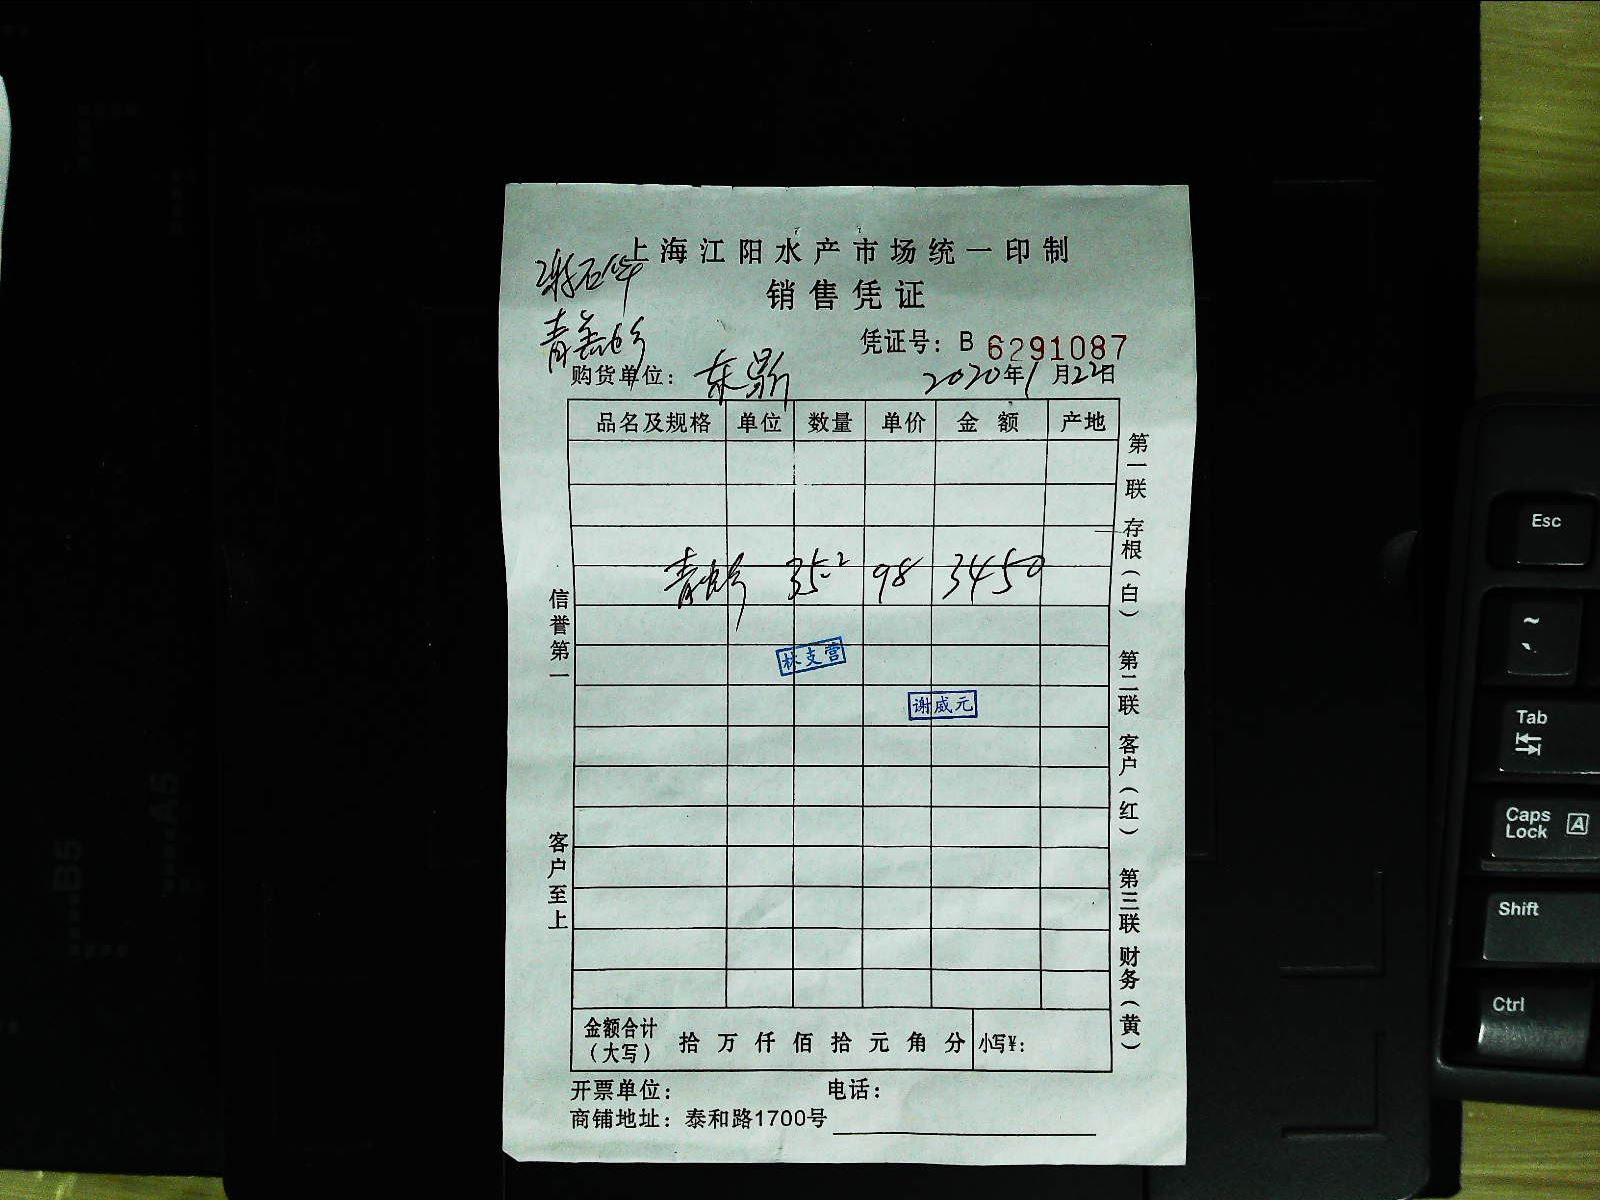 上海江阳水产市场统一印制
销售凭证
凭证号：B 6291087
购货单位：东鼎
2020年1月22日
品名及规格 单位 数量 单价 金额 产地
35.2 98 3450
林支营
谢威元
信誉第一
客户至上
第一联 存根（白） 第二联 客户（红） 第三联 财务（黄）
金额合计（大写） 拾 万 仟 佰 拾 元 角 分 小写¥：
开票单位： 电话：
商铺地址：泰和路1700号
Esc
~
Tab
Caps Lock A
Shift
Ctrl
B5
A5